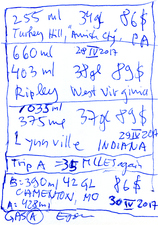 255 ml 34gl 86$
Turkey Hill, Amish City, PA
660 ml 28 IV 2017
403 ml 38gl 89$
Ripley West Virginia
1035 ml
375 ml 37gl 89$
29 IV 2017
Lynnville INDIANA
Trip A = 35 MILES again
B: 390 ml 42 GL 86$
CAMERTON, MO
A: 428 ml 30 IV 2017
GAS(A)